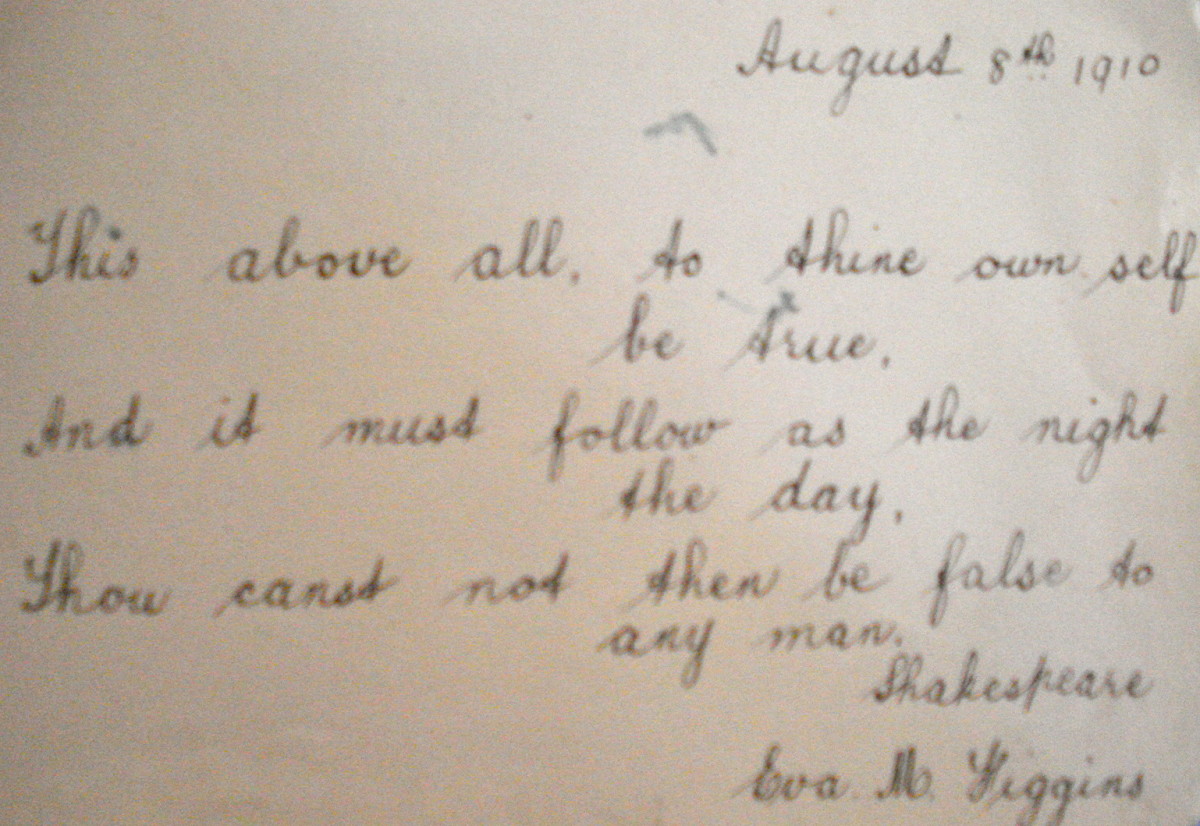 August 8th 1910
This above all, to thine own self
be true,
And it must follow as the night
the day,
Thou canst not then be false to
any man.
Shakespeare
Eva. M. Higgins